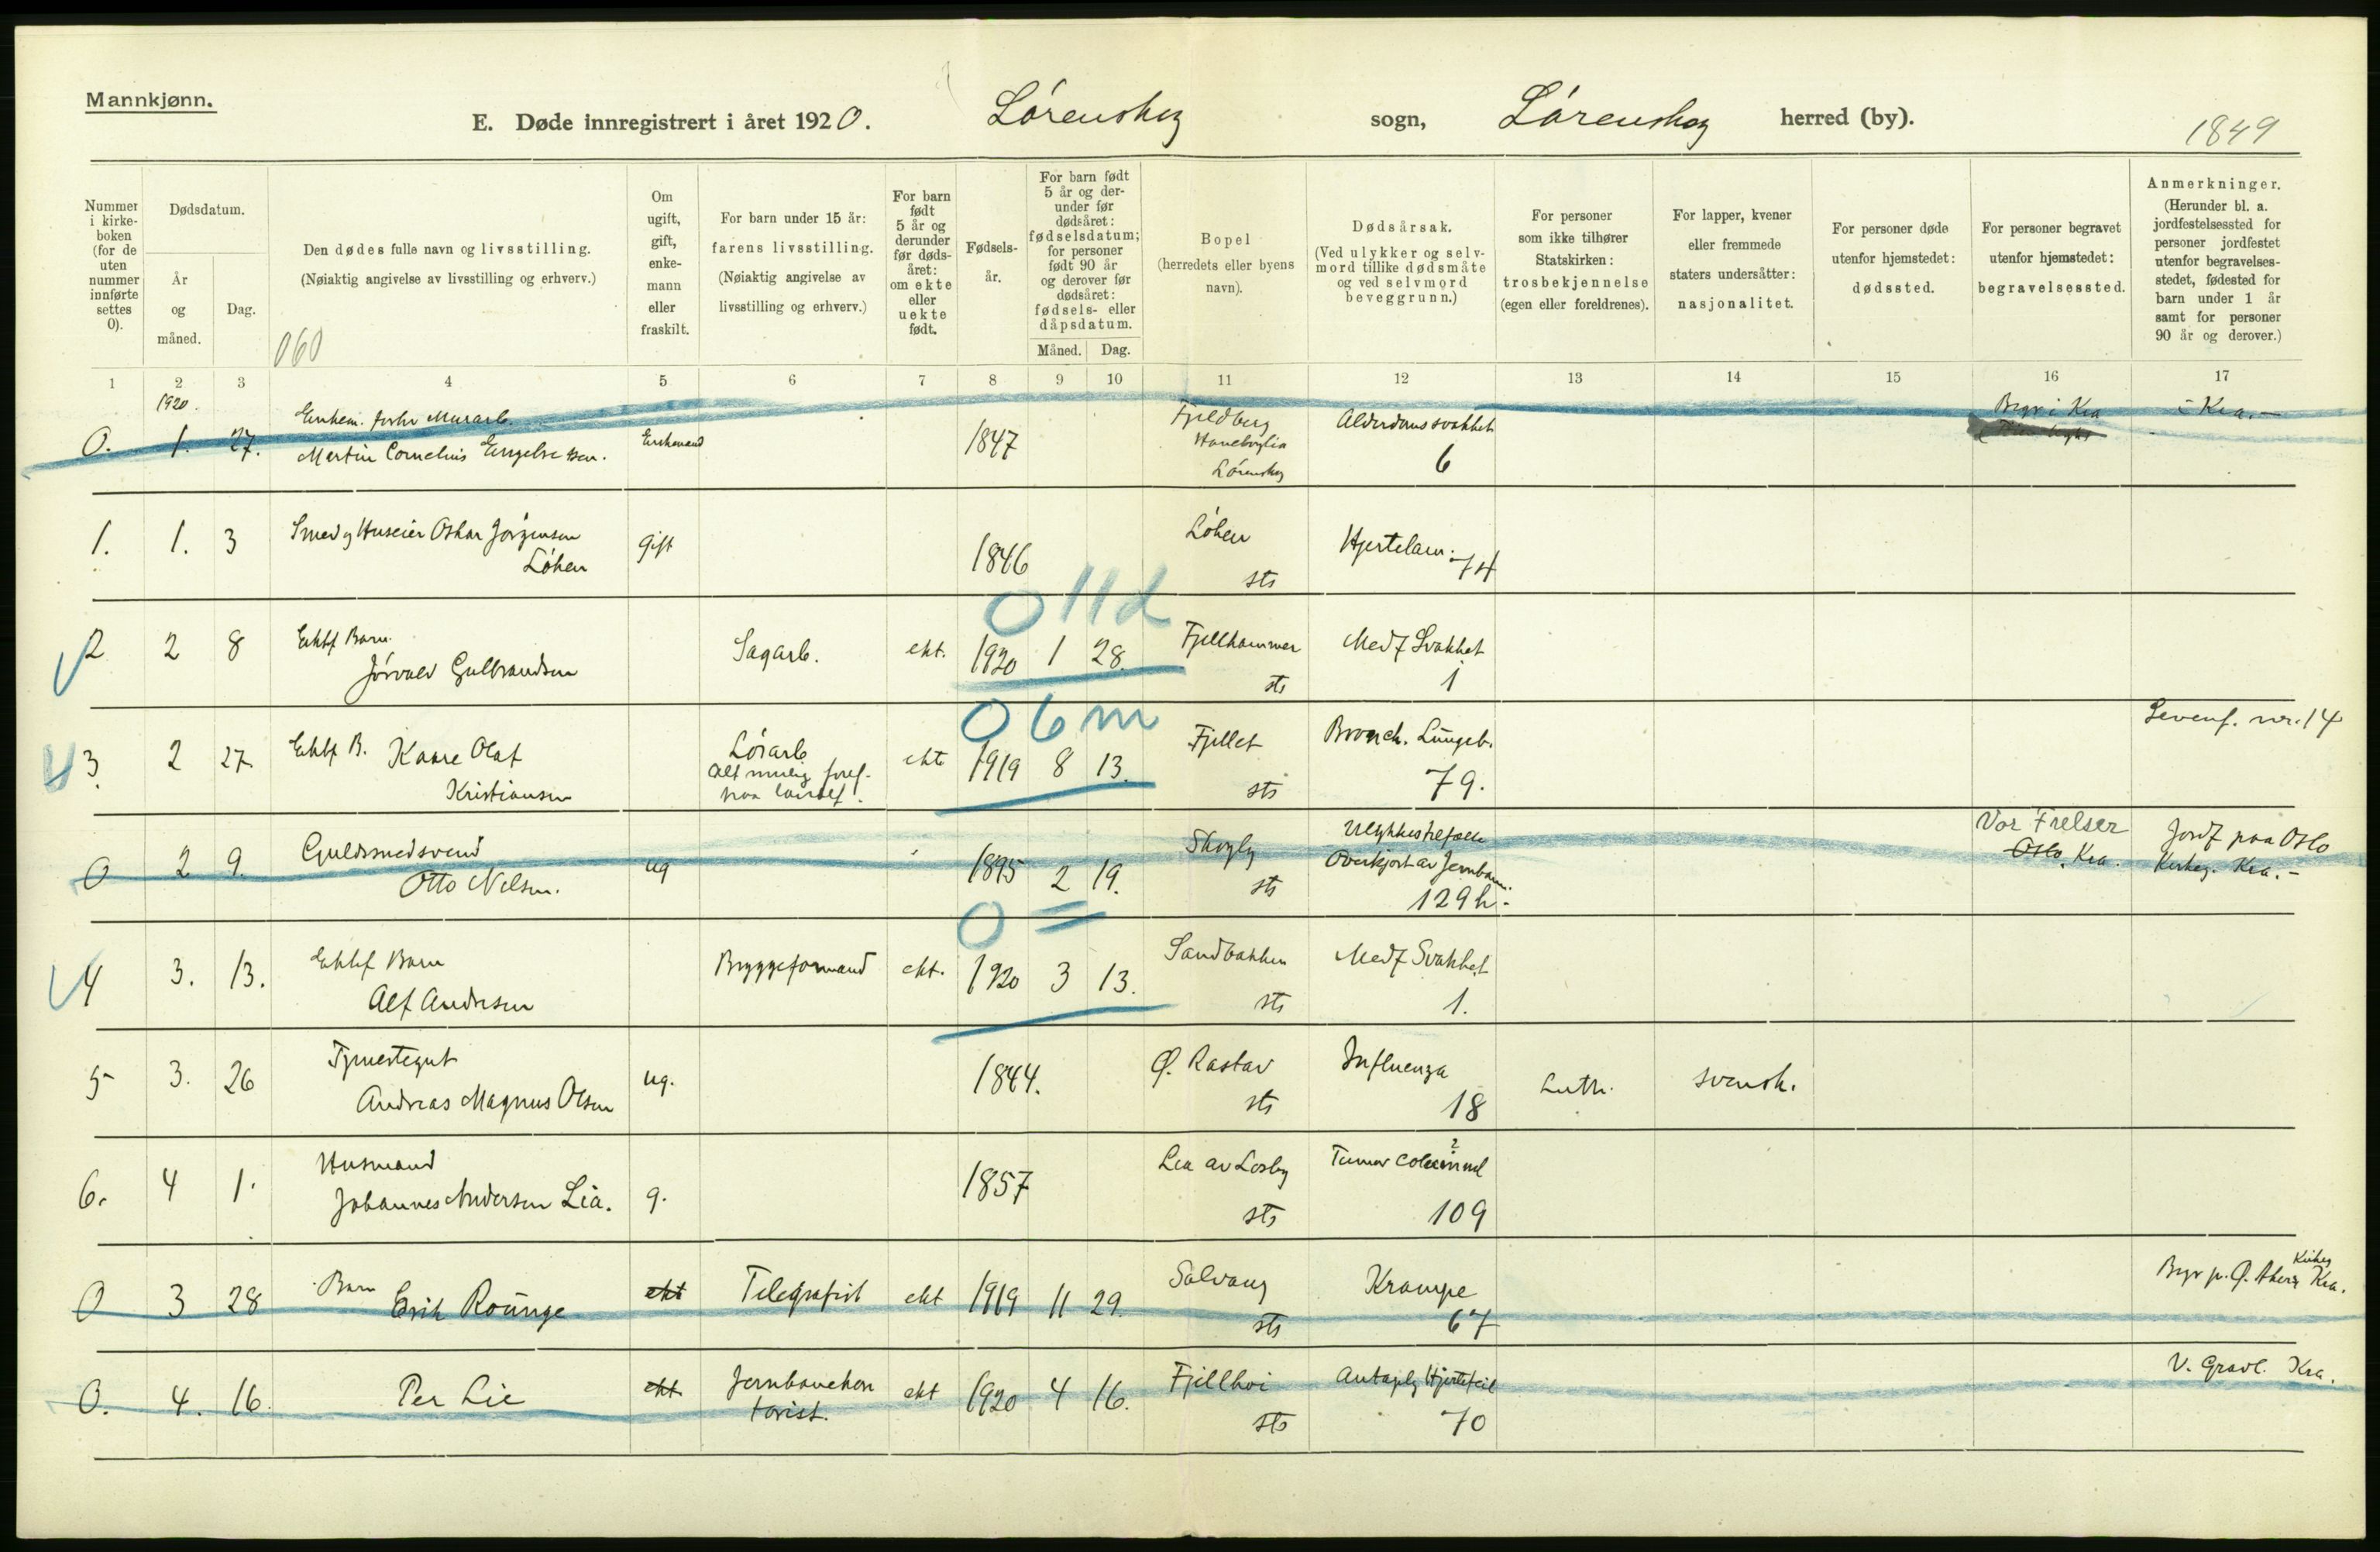 Mannkjønn.
E. Døde innregistrert i året 1920. Lørenskog sogn, Lørenskog herred (by).
1849
Nummer i kirkeboken (for de uten nummer innførte settes 0).
Dødsdatum.
År og måned.
Dag.
Den dødes fulle navn og livsstilling.
(Nøiaktig angivelse av livsstilling og erhverv.)
060
Om ugift, gift, enkemann eller fraskilt.
For barn under 15 år:
farens livsstilling.
(Nøiaktig angivelse av livsstilling og erhverv.)
For barn født 5 år og derunder før dødsåret: om ekte eller uekte født.
Fødselsår.
For barn født 5 år og derunder før dødsåret: fødselsdatum; for personer født 90 år og derover før dødsåret: fødsels- eller dåpsdatum.
Måned. Dag.
Bopel
(herredets eller byens navn).
Dødsårsak.
(Ved ulykker og selvmord tillike dødsmåte og ved selvmord beveggrunn.)
For personer som ikke tilhører Statskirken: trosbekjennelse (egen eller foreldrenes).
For lapper, kvener eller fremmede staters undersåtter: nasjonalitet.
For personer døde utenfor hjemstedet: dødssted.
For personer begravet utenfor hjemstedet: begravelsessted.
Anmerkninger.
(Herunder bl. a. jordfestelsessted for personer jordfestet utenfor begravelsesstedet, fødested for barn under 1 år samt for personer 90 år og derover.)
1 2 3 4 5 6 7 8 9 10 11 12 13 14 15 16 17
1920.
0. 1. 27. Enkem. Murarb. Martin Cornelius Engebretsen. Enkemand 1847 Fjeldberg Haneborglia Lørenskog Alderdomssvakhet 6 Begr i Kra - Kra. -
1. 1. 3 Smed og Huseier Oskar Jørgensen Løken gift 1846 Løken sts Hjertelam. 74
011d
2 2 8 Ektf Barn. Jørvald Gulbrandsen Sagarb. ekt. 1920 1 28. Fjellhammer sts Medf Svakhet 1
06m
3. 2 27. Ektf B. Kaare Olaf Kristiansen Løsarb ekte 1919 8 13. Fjellet sts Bronch. Lungeb. 79. Levenf. nr. 14
0 2 9. Guldsmedsvend Otto Nelsen. ug 1895 2 19. Skogly sts Ulykkestilfælde Overkjørt av Jernbanen. 129h. Vor Frelser Oslo. Kra. Jordf paa Oslo Kirkeg. Kra. -
0 =
4 3. 13. Ektf Barn Alf Andresen Bryggeformand ekt. 1920 3 13. Sandbakken sts Medf Svakhet 1.
5 3. 26 Tjenestegut Andreas Magnus Olsen ug. 1844. Ø. Rastav sts Influenza 18 Luth. svensk.
6. 4 1. Husmand Johannes Andersen Lia. g. 1857 Lia av Losby sts Tumor 109
0 3 28 Barn Erik Rounge ekt Telegrafist ekt 1919 11 29. Solvang sts Krampe 67 Begr p. Ø. Aker Kirkeg Kra.
0. 4. 16. Per Lie ekt Jernbanekontorist. ekt 1920 4 16. Fjellhøi sts Hjertefeil 70 V. Gravl. Kra.